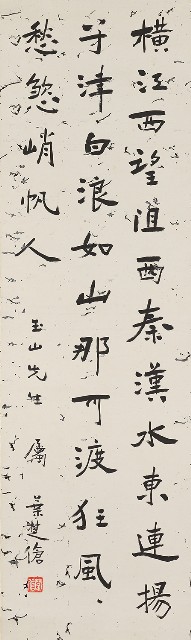 橫江西望阻西秦漢水東連揚
子津白浪如山那可渡狂風
愁煞峭帆人
玉山先生 屬 葉楚傖